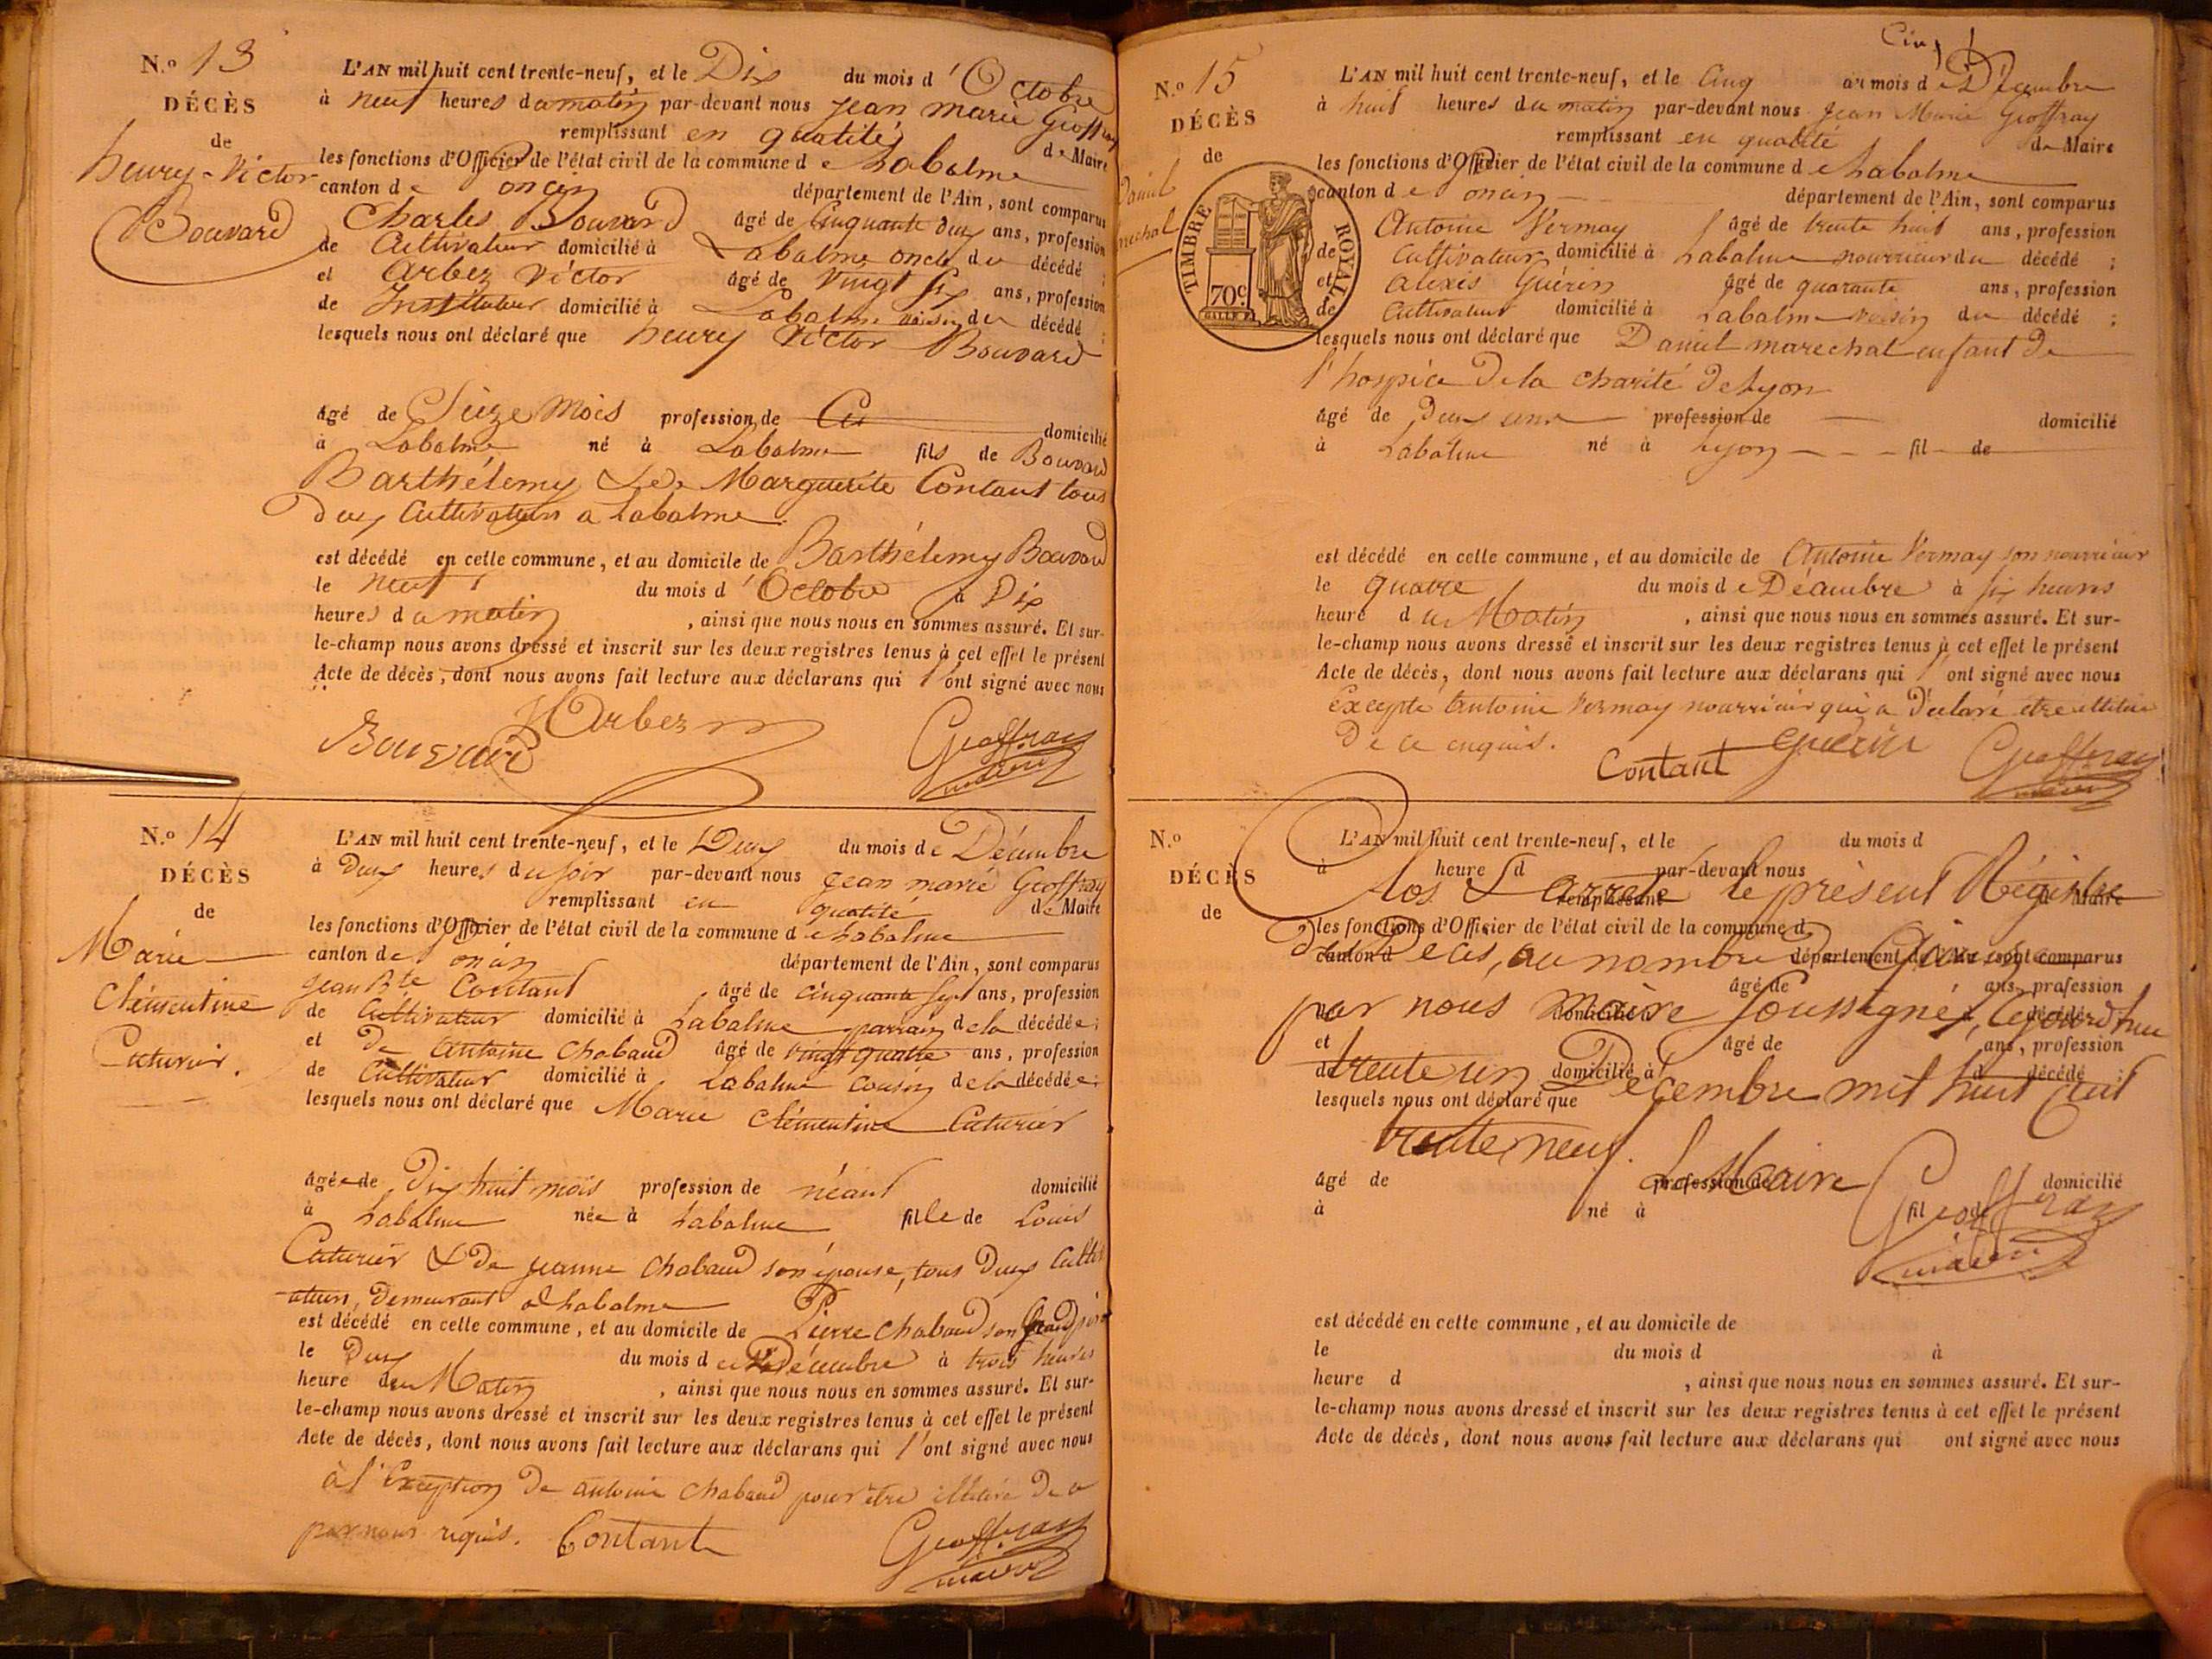 N.º 13
DÉCÈS
de
henry-Victor
Bouvard
L'AN mil huit cent trente-neuf, et le Dix du mois d'Octobre
à neuf heures du matin par-devant nous jean marie Geoffray
remplissant en qualité de Maire
les fonctions d'Officier de l'état civil de la commune de Labalme
canton de département de l'Ain, sont comparus
Charles Bouvard âgé de Cinquante deux ans, profession
de Cultivateur domicilié à Labalme oncle du décédé ;
et Arbez Victor âgé de Vingt six ans, profession
de Instituteur domicilié à Labalme voisin du décédé ;
lesquels nous ont déclaré que henry Victor Bouvard
âgé de Seize Mois profession de domicilié
à Labalme né à Labalme fils de Bouvard
Barthélemy & de Marguerite Contant tous
deux Cultivateurs a Labalme
est décédé en celle commune, et au domicile de Barthélemy Bouvard
le neuf du mois d'Octobre à Dix
heures du matin, ainsi que nous nous en sommes assuré. Et sur-
le-champ nous avons dressé et inscrit sur les deux registres tenus à cet effet le présent
Acte de décès, dont nous avons fait lecture aux déclarans qui l'ont signé avec nous
Arbez
Bouvard Geoffray
maire
N.º 14
DÉCÈS
de
Marie
Clémentine
Cuturier.
L'AN mil huit cent trente-neuf, et le Deux du mois de Décembre
à Deux heures du soir par-devant nous jean marie Geoffray
remplissant en qualité de Maire
les fonctions d'Officier de l'état civil de la commune de Labalme
canton de département de l'Ain, sont comparus
jean Bte Contant âgé de cinquante sept ans, profession
de Cultivateur domicilié à Labalme parrain de la décédée ;
et De Antoine Chabaud âgé de vingt quatre ans, profession
de Cultivateur domicilié à Labalme cousin de la décédée ;
lesquels nous ont déclaré que Marie Clémentine Cuturier
âgée de Dix huit mois profession de néant domicilié
à Labalme née à Labalme fille de Louis
Cuturier & de jeanne Chabaud son épouse, tous deux Culti
ateurs, demeurant à Labalme
est décédé en celle commune, et au domicile de Pierre Chabaud son Grand père
le Deux du mois de Décembre à trois heures
heure du Matin, ainsi que nous nous en sommes assuré. Et sur-
le-champ nous avons dressé et inscrit sur les deux registres tenus à cet effet le présent
Acte de décès, dont nous avons fait lecture aux déclarans qui l'ont signé avec nous
à l'Exception de antoine Chabaud pour être illitéré de ce
par nous requis. Contant Geoffray
maire
Cinq
N.º 15
DÉCÈS
de
Daniel
marechal
TIMBRE ROYAL
70c
L'AN mil huit cent trente-neuf, et le Cinq au mois de Décembre
à huit heures du matin par-devant nous Jean Marie Geoffray
remplissant en qualité de Maire
les fonctions d'Officier de l'état civil de la commune de Labalme
canton de département de l'Ain, sont comparus
Antoine Vermay âgé de trente huit ans, profession
de Cultivateur domicilié à Labalme nourricier du décédé ;
et alexis Guérin âgé de quarante ans, profession
de Cultivateur domicilié à Labalme voisin du décédé ;
lesquels nous ont déclaré que Daniel marechal enfant de
l'hospice de la charité de Lyon
âgé de Deux ans profession de domicilié
à Labalme né à Lyon fil de
est décédé en celle commune, et au domicile de Antoine Vermay son nourricier
le quatre du mois de Décembre à six heures
heure du Matin, ainsi que nous nous en sommes assuré. Et sur-
le-champ nous avons dressé et inscrit sur les deux registres tenus à cet effet le présent
Acte de décès, dont nous avons fait lecture aux déclarans qui l'ont signé avec nous
Excepté Antoine Vermay nourricier qui a déclaré etre illitéré
de ce enquis.
Contant Guérin Geoffray
maire
N.º
DÉCÈS
de
L'AN mil huit cent trente-neuf, et le du mois d
à heure d par-devant nous
Clos & arrêté le présent Régistre
remplissant de Maire
les fonctions d'Officier de l'état civil de la commune d
des Décès, au nombre de Quinze
canton d département de l'Ain, sont comparus
âgé de ans, profession
par nous Maire soussigné, Cejourd'hui
de domicilié à d décédé ;
et âgé de ans, profession
trente un Décembre mil huit cent
de domicilié à d décédé ;
lesquels nous ont déclaré que
trente neuf.
Le Maire Geoffray
maire
âgé de profession de domicilié
à né à fil de
est décédé en celle commune, et au domicile de
le du mois d à
heure d , ainsi que nous nous en sommes assuré. Et sur-
le-champ nous avons dressé et inscrit sur les deux registres tenus à cet effet le présent
Acte de décès, dont nous avons fait lecture aux déclarans qui ont signé avec nous